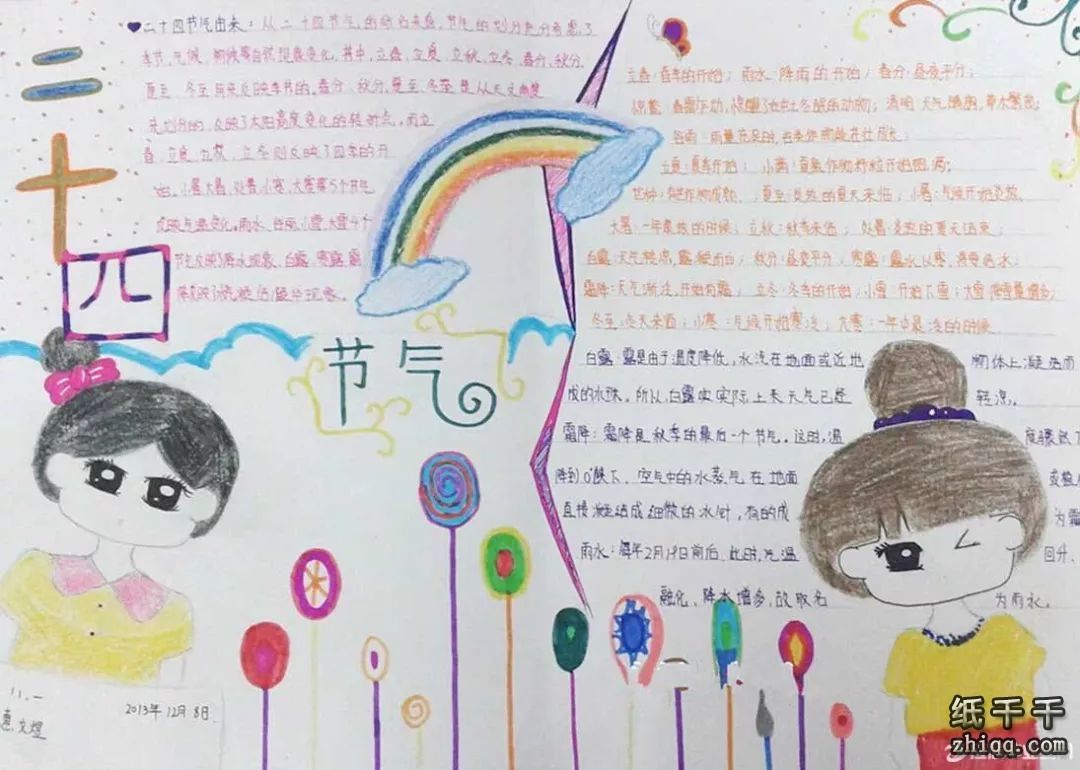 二十四
节气
二十四节气由来：从二十四节气的命名来看，节气的划分充分考虑了
季节、气候、物候等自然现象变化。其中，立春、立夏、立秋、立冬、春分、秋分、
夏至、冬至是用来反映季节的。春分、秋分、夏至、冬至是从天文角度
来划分的，反映了太阳高度变化的转折点。而立
春、立夏、立秋、立冬则反映了四季的开
始。小暑、大暑、处暑、小寒、大寒等5个节气
反映气温变化。雨水、谷雨、小雪、大雪4个
节气反映了降水现象。白露、寒露、霜
降反映了
立春：春季的开始；雨水：降雨的开始；春分：昼夜平分；
惊蛰：春雷乍动，惊醒了蛰伏在土中冬眠的动物；清明：天气晴朗，草木繁茂；
谷雨：雨量充足
立夏：夏季开始；小满：夏熟作物籽粒开始饱满；
芒种：作物成熟；夏至：炎热的夏天来临；小暑：气候开始炎热
大暑：一年最热的时候；立秋：秋季来临；处暑：炎热的夏天结束；
白露：天气转凉，露凝而白；秋分：昼夜平分；寒露：露水以寒，将要结冰；
霜降：天气渐冷，开始有霜；立冬：冬季的开始；小雪：开始下雪；大雪：降雪量增多；
冬至：冬天来临；小寒：气候开始寒冷；大寒：一年中最冷的时候
白露：露是由于温度降低，水汽在地面或近地 物体上凝结而
成的水珠。所以，白露实际上表天气已经 转凉。
霜降：霜降是秋季的最后一个节气。这时，温 度骤然下
降到0°
空气中的水蒸气在地面 或植
直接凝结成细微的冰针，有的成 为霜
雨水：每年2月19日前后，此时，气温 回升、
融化、降水增多，故取名 为雨水。
2013年12月8日
纸千千
zhiqq.com